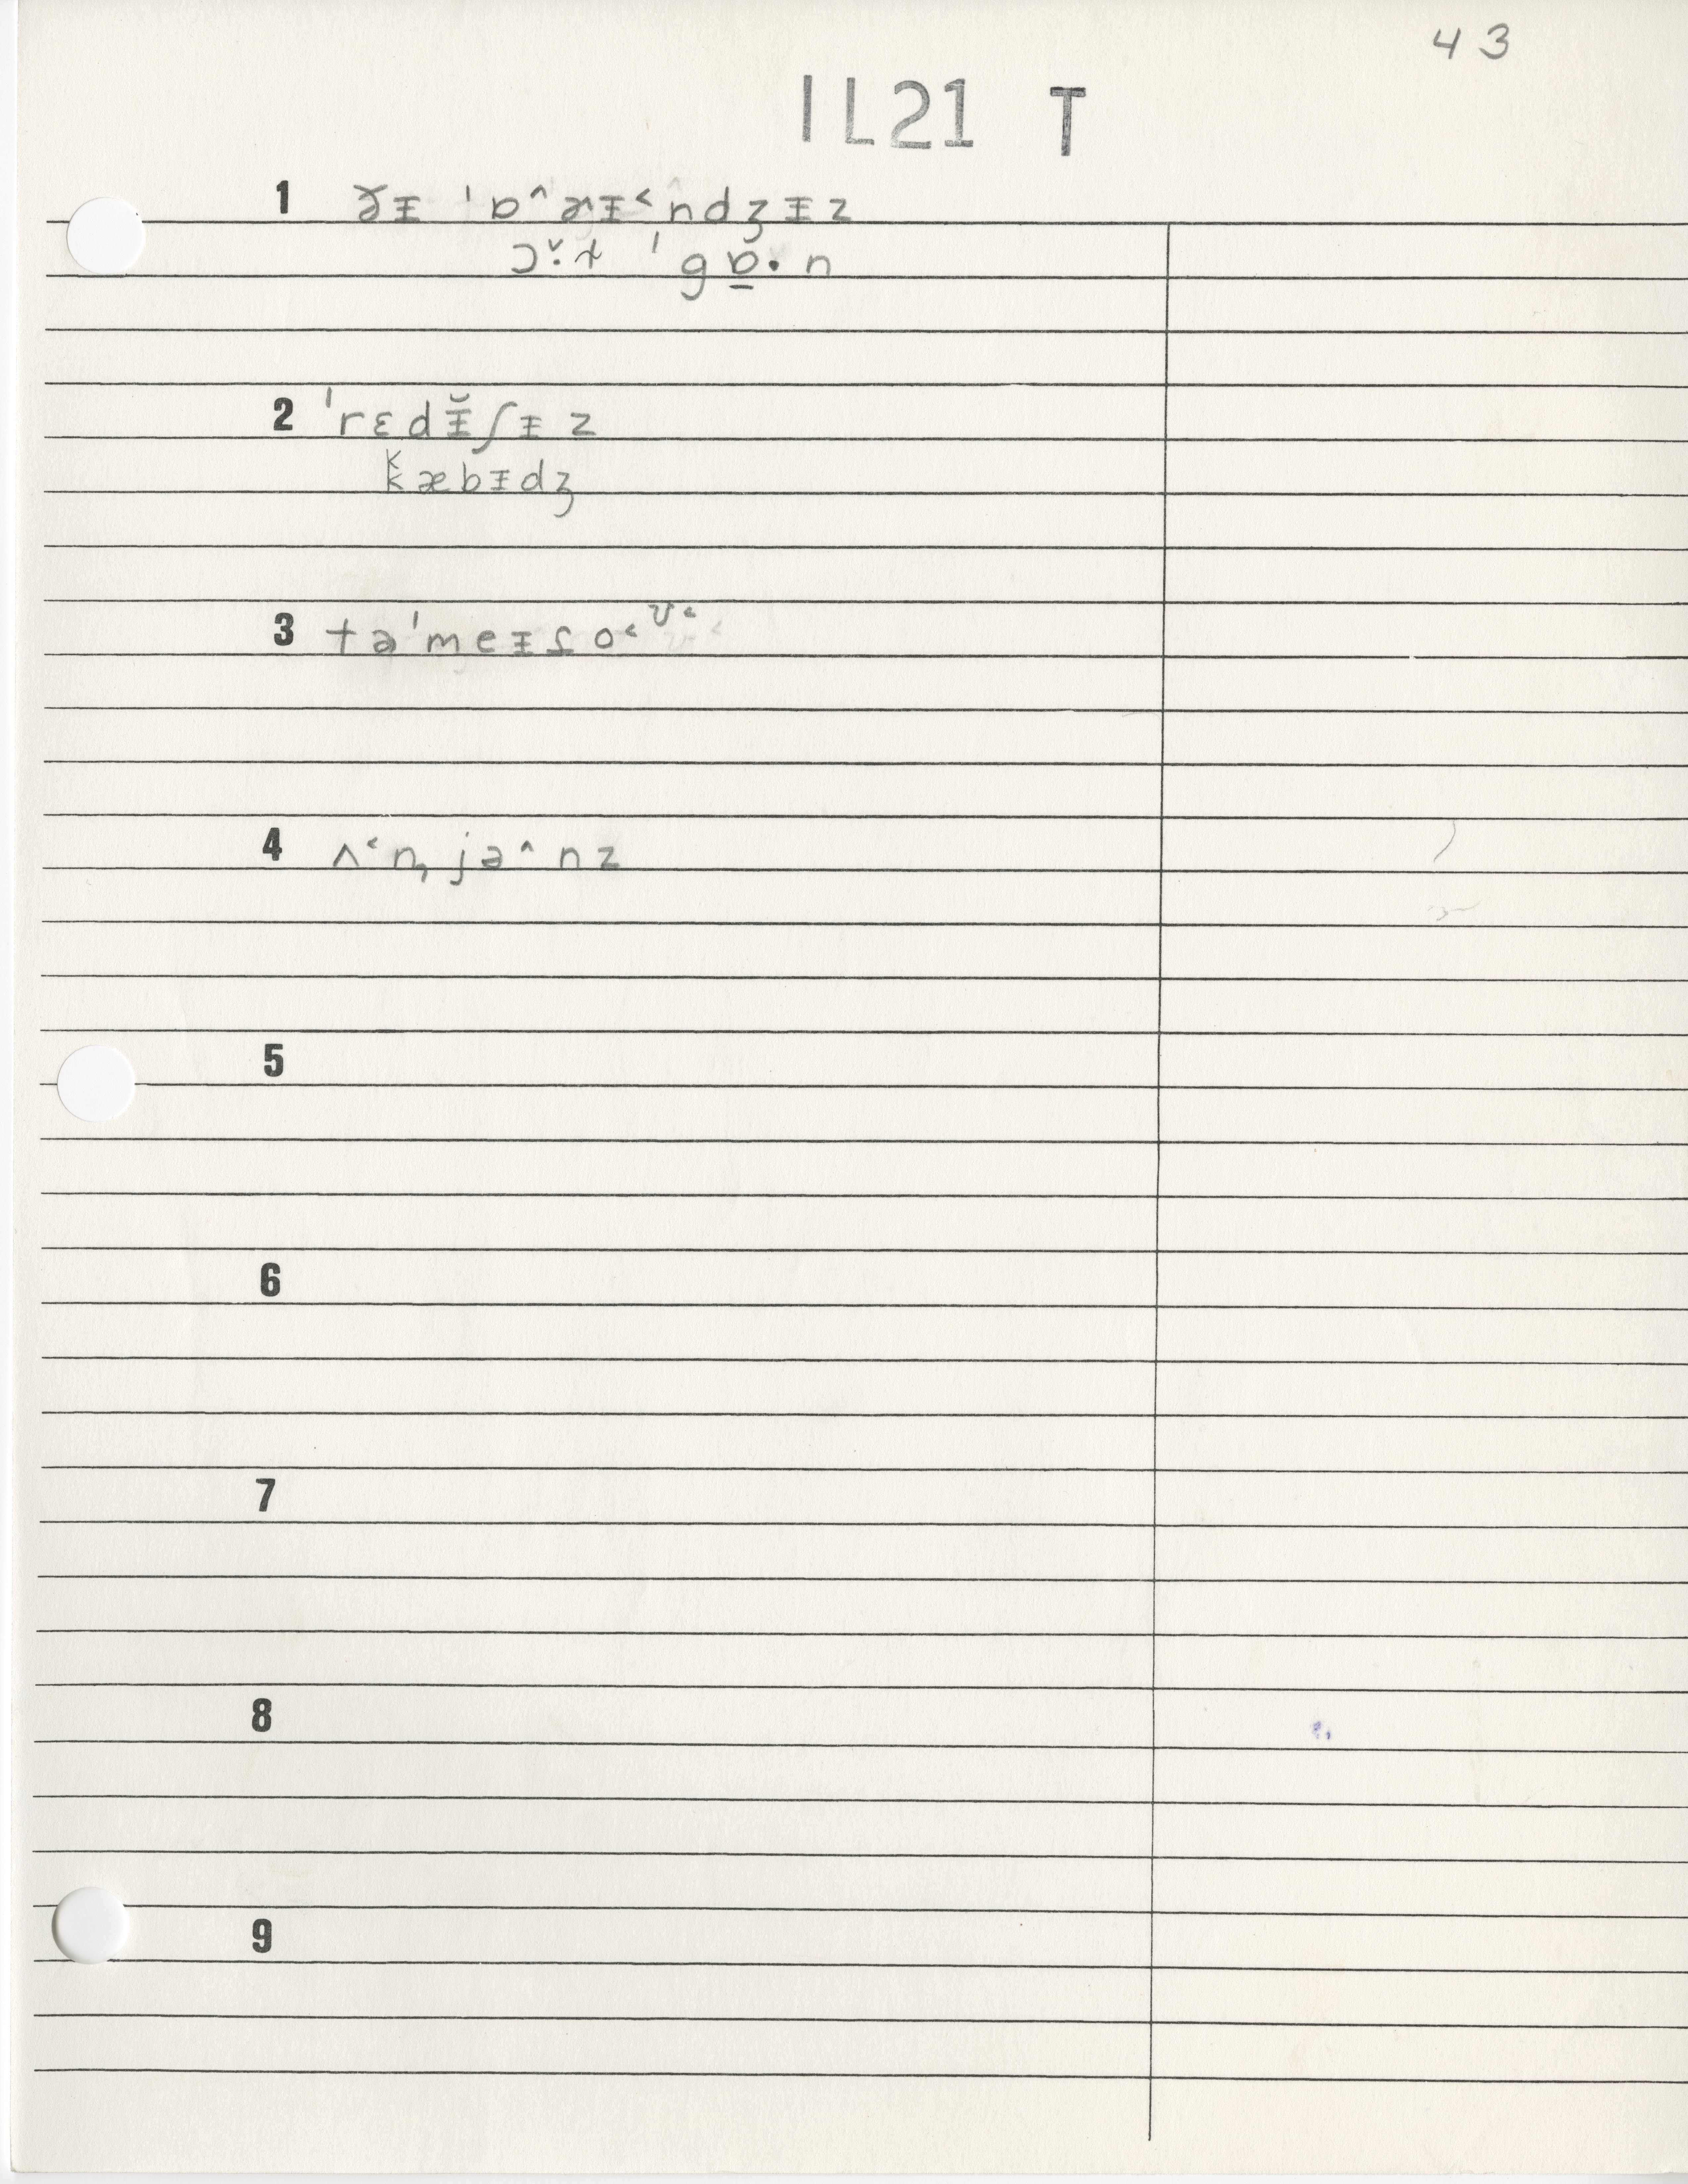 43
IL21 T
1 ɤ̆ᵻ ˈɒ^ɚᵻ˂ndʒᵻz
ɔˇ·ɫ ˈgɒ̠̆·n
2 ˈrɛdᵻ̆ʃᵻz
kæbᵻdʒ
3 təˈmeᵻɾo˂ʊ˂
4 ʌ˂n, jə^nz
5
6
7
8
9